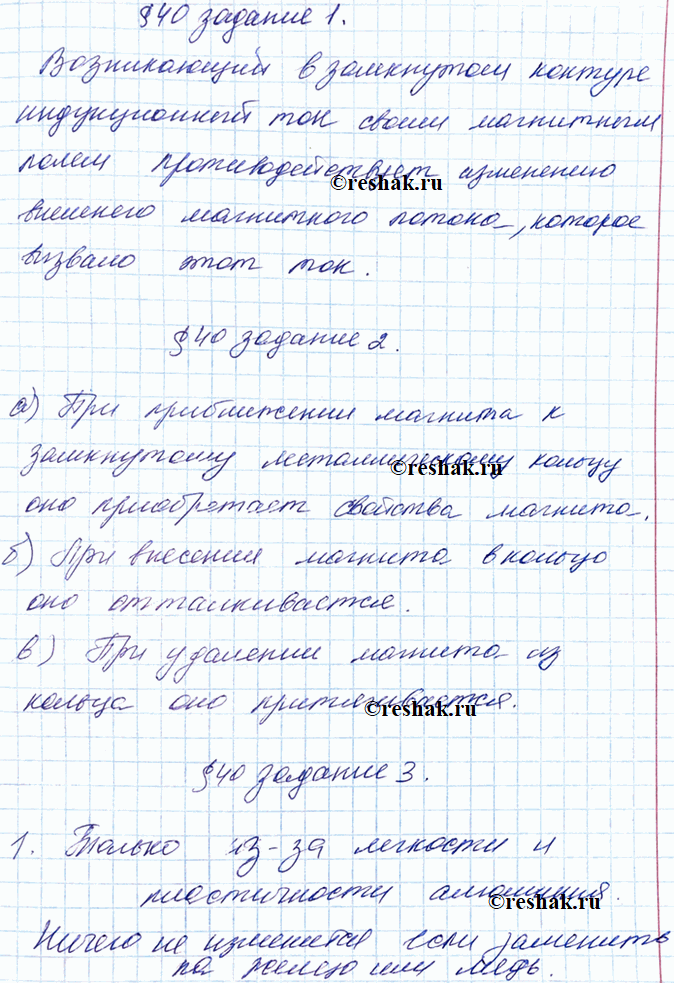 §40 задание 1.
Возникающий в замкнутом контуре
индукционный ток своим магнитным
полем противодействует изменению
©reshak.ru
внешнего магнитного потока, которое
вызвало этот ток.
§40 задание 2.
а) При приближении магнита к
замкнутому металлическому кольцу
©reshak.ru
оно приобретает свойства магнита.
б) При внесении магнита в кольцо
оно отталкивается.
в) При удалении магнита из
кольца оно притягивается.
©reshak.ru
§40 задание 3.
1. Только из-за легкости и
пластичности алюминия.
©reshak.ru
Ничего не изменится если заменить
на железо или медь.